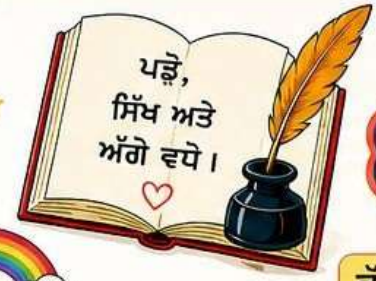 ਪੜ੍ਹੋ,
ਸਿੱਖ ਅਤੇ
ਅੱਗੇ ਵਧੋ।